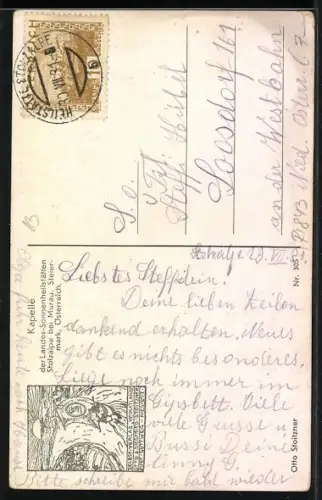 HEILSTÄTTE STOLZALPE
S. g.
Frl.
Steff. Hübel
Loosdorf 161
an der Westbahn
Nied. Österr.
Kapelle
der Landes-Sonnenheilstätten
Stolzalpe bei Murau, Steier-
mark, Österreich.
Nr. 105
Otto Stoitzner
Stolzalpe 29. VII.
Liebstes Steffilein.
Deine lieben Zeilen
dankend erhalten. Neues
gibt es nichts besonderes.
Liege noch immer im
Gipsbett. Viele
viele Grüsse u.
Bussi Deine
Bitte schreibe mir bald wieder